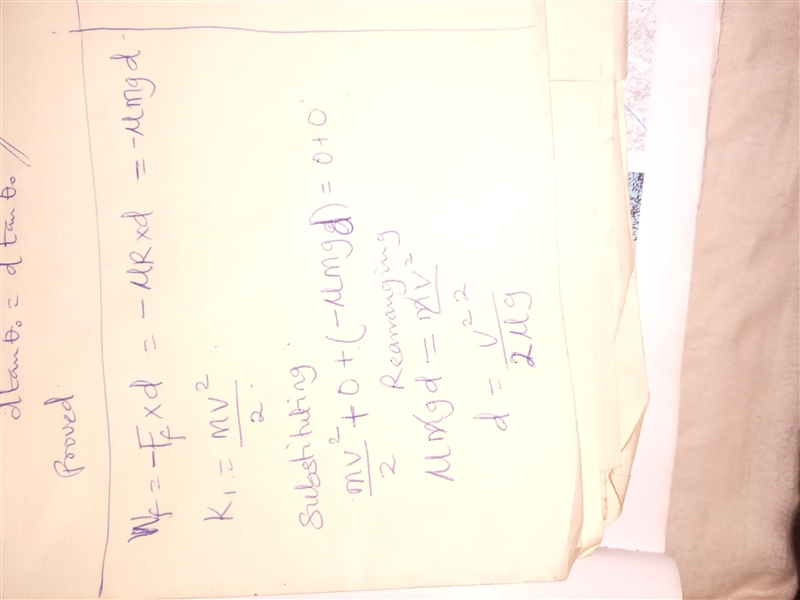 dtanθ₀ = d tan θ₀ //
Proved.
W_f = -F_f × d = -μR × d = -μmgd.
K₁ = mv²/2.
Substituting.
mv²/2 + 0 + (-μmgd) = 0 + 0
Rearranging
μmgd = mv²/2
d = v²/2μg.